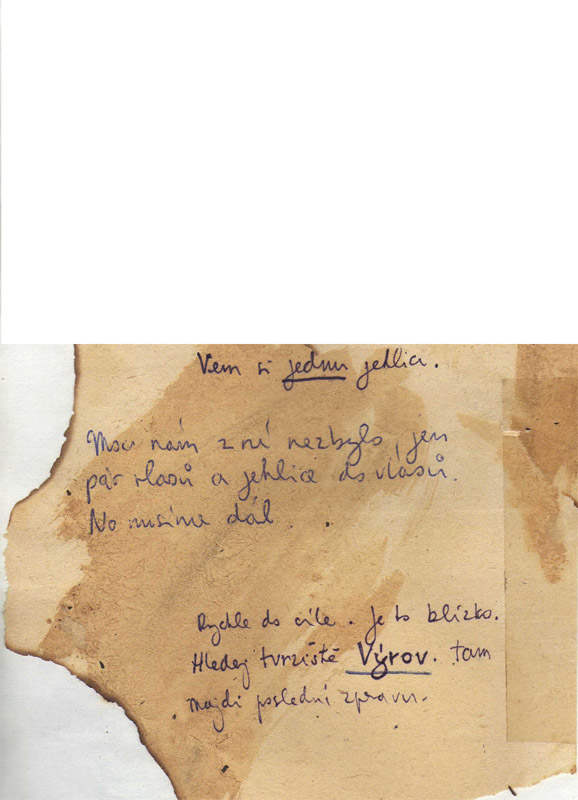 Vem si jednu jehlici.
Moc nám z ní nezbylo, jen
pár vlasů a jehlice do vlasů.
No musíme dál.
Rychle do cíle. Je to blízko.
Hledej tvrziště Výrov. tam
najdi poslední zprávu.